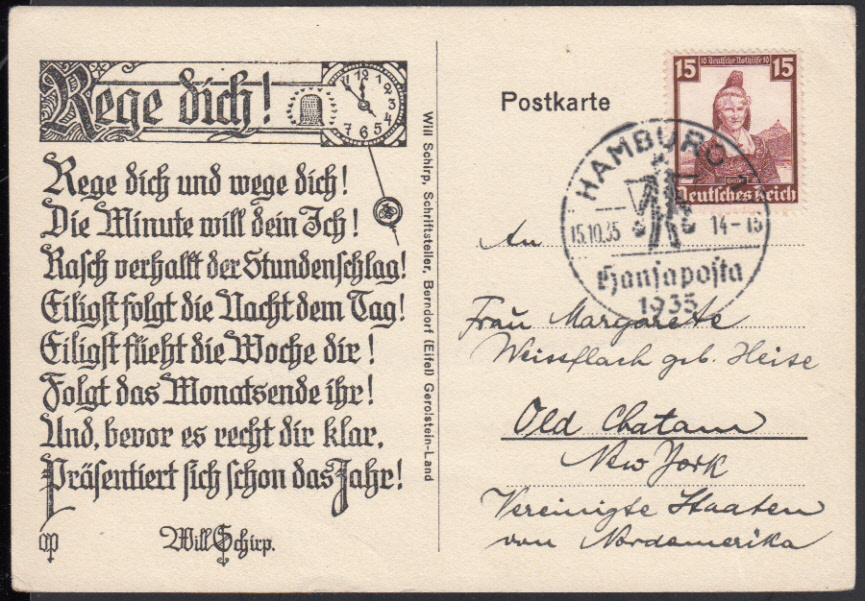 Rege dich!
12
1
2
3
4
5
6
7
Rege dich und wege dich!
Die Minute will dein Ich!
Rasch verhallt der Stundenschlag!
Eiligst folgt die Nacht dem Tag!
Eiligst flieht die Woche dir!
Folgt das Monatsende ihr!
Und, bevor es recht dir klar,
Präsentiert sich schon das Jahr!
Will Schirp.
Will Schirp, Schriftsteller, Berndorf (Eifel) Gerolstein-Land
Postkarte
15 10 Deutsche Nothilfe 10 15
Deutsches Reich
HAMBURG
15.10.35 14-15
Hansaposta
1935
An
Frau Margarete
Weissflach geb. Heise
Old Chatam
New York
Vereinigte Staaten
von Nordamerika